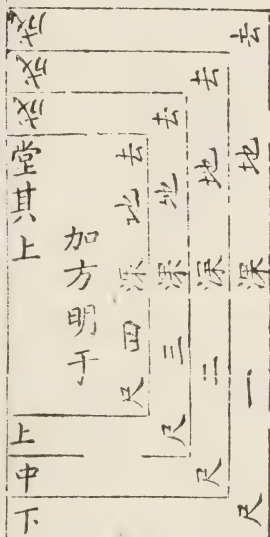 去地深一尺
去地深二尺
去地深三尺
去地深四尺
加方明于
堂其上
上
中
下